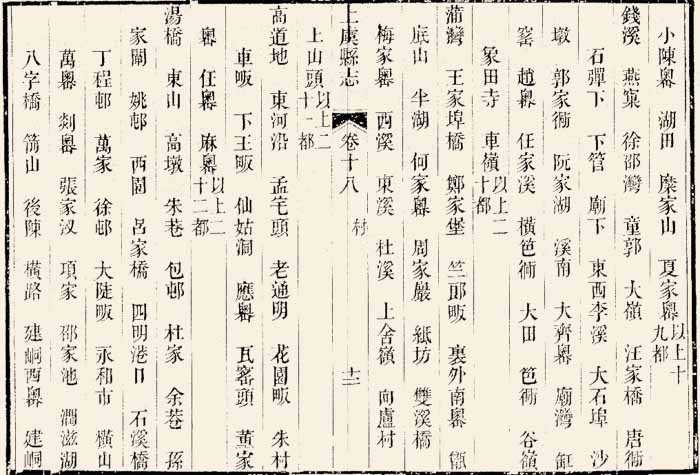 小陳嶴 湖田 糜家山 夏家嶴 以上十九都
錢溪 燕窠 徐邵灣 童郭 大嶺 汪家橋 唐衕
石彈下 下管 廟下 東西李溪 大石埠 沙
墩 郭家衕 阮家湖 溪南 大齊嶴 廟灣 缸
窰 趙嶴 任家溪 橫笆衕 大田 笆衕 谷嶺
象田寺 車嶺 以上二十都
蒲灣 王家埠橋 鄭家堡 竺郎畈 裏外南嶴 甑
底山 半湖 何家嶴 周家嚴 紙坊 雙溪橋
梅家嶴 西溪 東溪 杜溪 上舍嶺 向盧村
上虞縣志 卷十八 村 十二
上山頭 以上二十一都
高道地 東河沿 孟宅頭 老通明 花園畈 朱村
車畈 下王畈 仙姑洞 應嶴 瓦窰頭 董家
嶴 任嶴 麻嶴 以上二十二都
湯橋 東山 高墩 朱巷 包邨 杜家 余巷 孫
家閘 姚邨 西園 呂家橋 四明港口 石溪橋
丁程邨 萬家 徐邨 大陡畈 永和市 橫山
萬嶴 剡嶴 張家汊 項家 邵家池 澗滋湖
八字橋 箭山 後陳 橫路 建峒西嶴 建峒